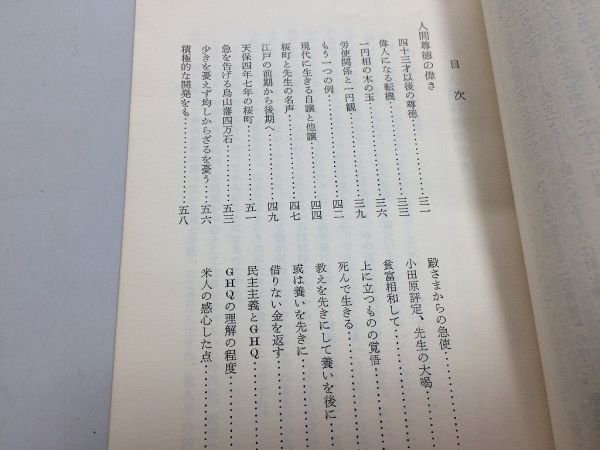 目次
人間尊徳の偉さ
四十三才以後の尊徳‥‥‥‥‥三一
偉人になる転機‥‥‥‥‥三三
一円相の木の玉‥‥‥‥‥三六
労使関係と一円観‥‥‥‥‥三九
もう一つの例‥‥‥‥‥四二
現代に生きる自譲と他譲‥‥‥‥‥四四
桜町と先生の名声‥‥‥‥‥四七
江戸の前期から後期へ‥‥‥‥‥四九
天保四年七年の桜町‥‥‥‥‥五一
急を告げる烏山藩四万石‥‥‥‥‥五三
少きを憂えず均しからざるを憂う‥‥‥‥‥五六
積極的な開発をも‥‥‥‥‥五八
殿さまからの急使‥‥‥‥‥
小田原評定、先生の大喝‥‥‥‥‥
貧富相和して‥‥‥‥‥
上に立つものの覚悟‥‥‥‥‥
死んで生きる‥‥‥‥‥
教えを先きにして養いを後に‥‥‥‥‥
或は養いを先きに‥‥‥‥‥
借りない金を返す‥‥‥‥‥
民主主義とGHQ‥‥‥‥‥
GHQの理解の程度‥‥‥‥‥
米人の感心した点‥‥‥‥‥